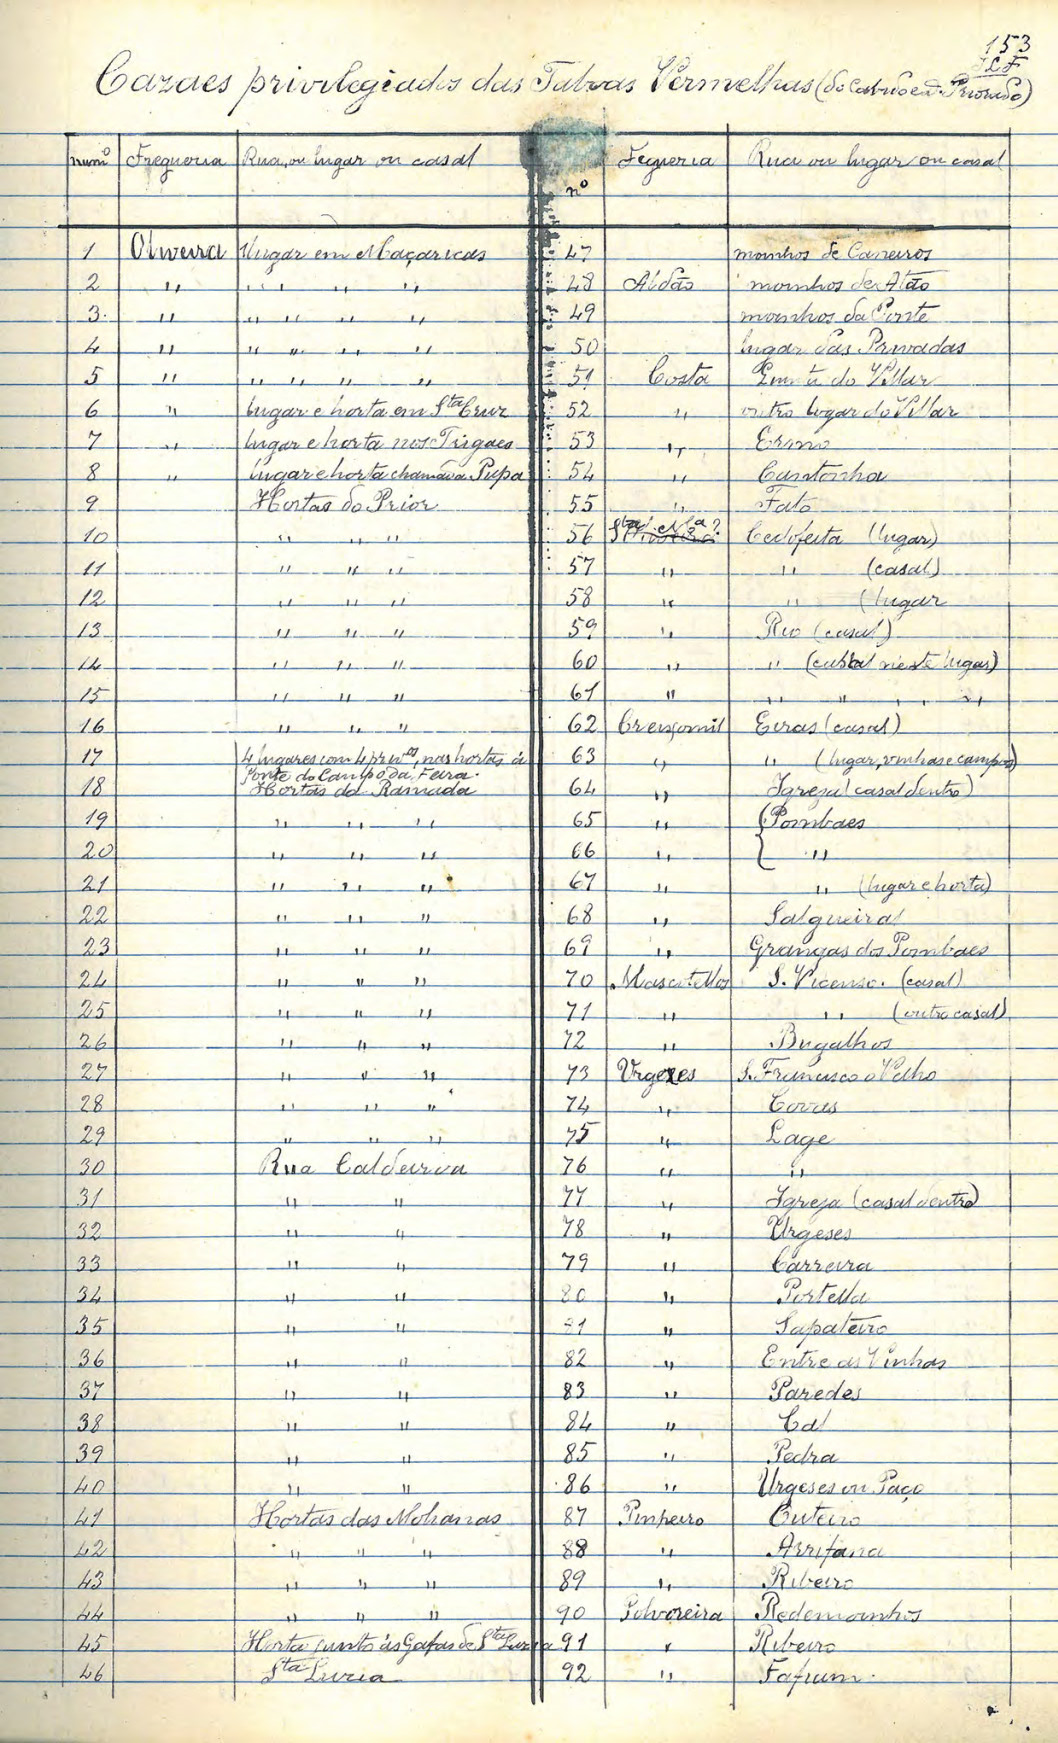 153
J.L.F.
Cazaes privilegiados das Tabvas Vermelhas (do Cabido e do Priorado)
numº Fregueria Rua, ou lugar ou casal
1 Oliveira lugar em Maçaricas
2 " " " " "
3 " " " " "
4 " " " " "
5 " " " " "
6 " lugar e horta em Sta Cruz
7 " lugar e horta nos Trigaes
8 " lugar e horta chamada Pupa
9 Hortas do Prior
10 " " "
11 " " "
12 " " "
13 " " "
14 " " "
15 " " "
16 " " "
17 4 lugares com 4 , nas hortas á
Ponte do Campo da Feira.
18 Hortas da Ramada
19 " " "
20 " " "
21 " " "
22 " " "
23 " " "
24 " " "
25 " " "
26 " " "
27 " " "
28 " " "
29 " " "
30 Rua Caldeirôa
31 " "
32 " "
33 " "
34 " "
35 " "
36 " "
37 " "
38 " "
39 " "
40 " "
41 Hortas das Molianas
42 " " "
43 " " "
44 " " "
45 Horta junto ás Gafas de Sta Luzia
46 Sta Luzia
nº Fegueria Rua ou lugar ou casal
47 moinhos de Caneiros
48 Aldão moinhos de Aldão
49 moinhos da Ponte
50 lugar das Privadas
51 Costa Quinta do Villar
52 " outro logar do Villar
53 " Ermo
54 " Cantonha
55 " Fato
56 Cedofeita (lugar)
57 " " (casal)
58 " " (lugar
59 " Rio (casal)
60 " " (casal neste lugar)
61 " " " " " "
62 Creixomil Eiras (casal)
63 " " (lugar, vinhas e campos)
64 " Igreja (casal dentro)
65 " Pombaes
66 " "
67 " " (lugar e horta)
68 " Salgueiral
69 " Granjas dos Pombaes
70 Mascotellos S. Vicenso. (casal)
71 " " (outro casal)
72 " Bugalhos
73 Urgezes S. Francisco o Velho
74 " Covas
75 " Lage
76 " "
77 " Igreja (casal dentro)
78 " Urgeses
79 " Carreira
80 " Portella
81 " Sapateiro
82 " Entre as Vinhas
83 " Paredes
84 " Cal
85 " Pedra
86 " Urgeses ou Paço
87 Pinheiro Outeiro
88 " Arrifana
89 " Ribeiro
90 Polvoreira Redemoinhos
91 " Ribeiro
92 " Fafium.